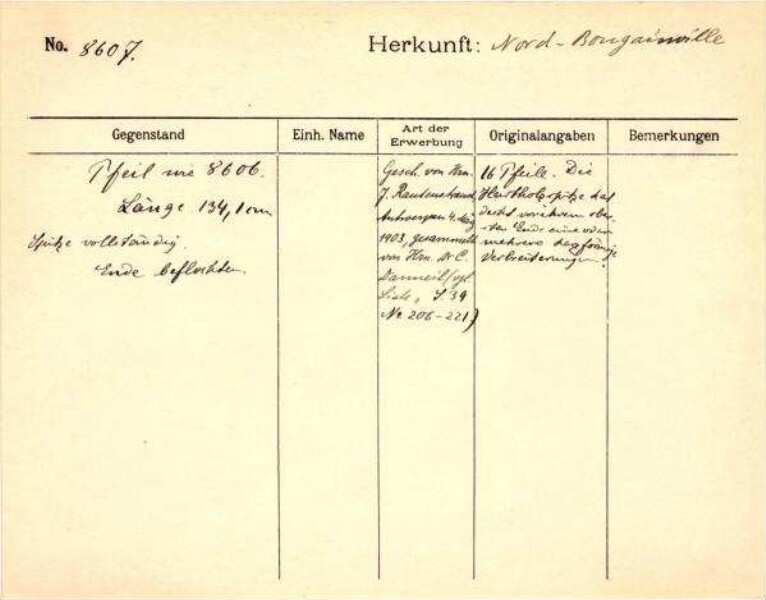 No. 8607.
Herkunft: Nord-Bougainville
Gegenstand
Einh. Name
Art der Erwerbung
Originalangaben
Bemerkungen
Pfeil wie 8606.
Länge 134,1 cm
Spitze vollständig.
Ende beflochten.
Gesch. von Hrn.
J. Rautenstrauch,
Antwerpen 4. 
1903, gesammelt
von Hrn. Dr C.
Danneil (vgl
Liste, S 39
No 206-221)
16 Pfeile. Die
Hartholzspitze hat
dicht vor ihrem obe-
ren Ende eine oder
mehrere
Verbreiterungen.